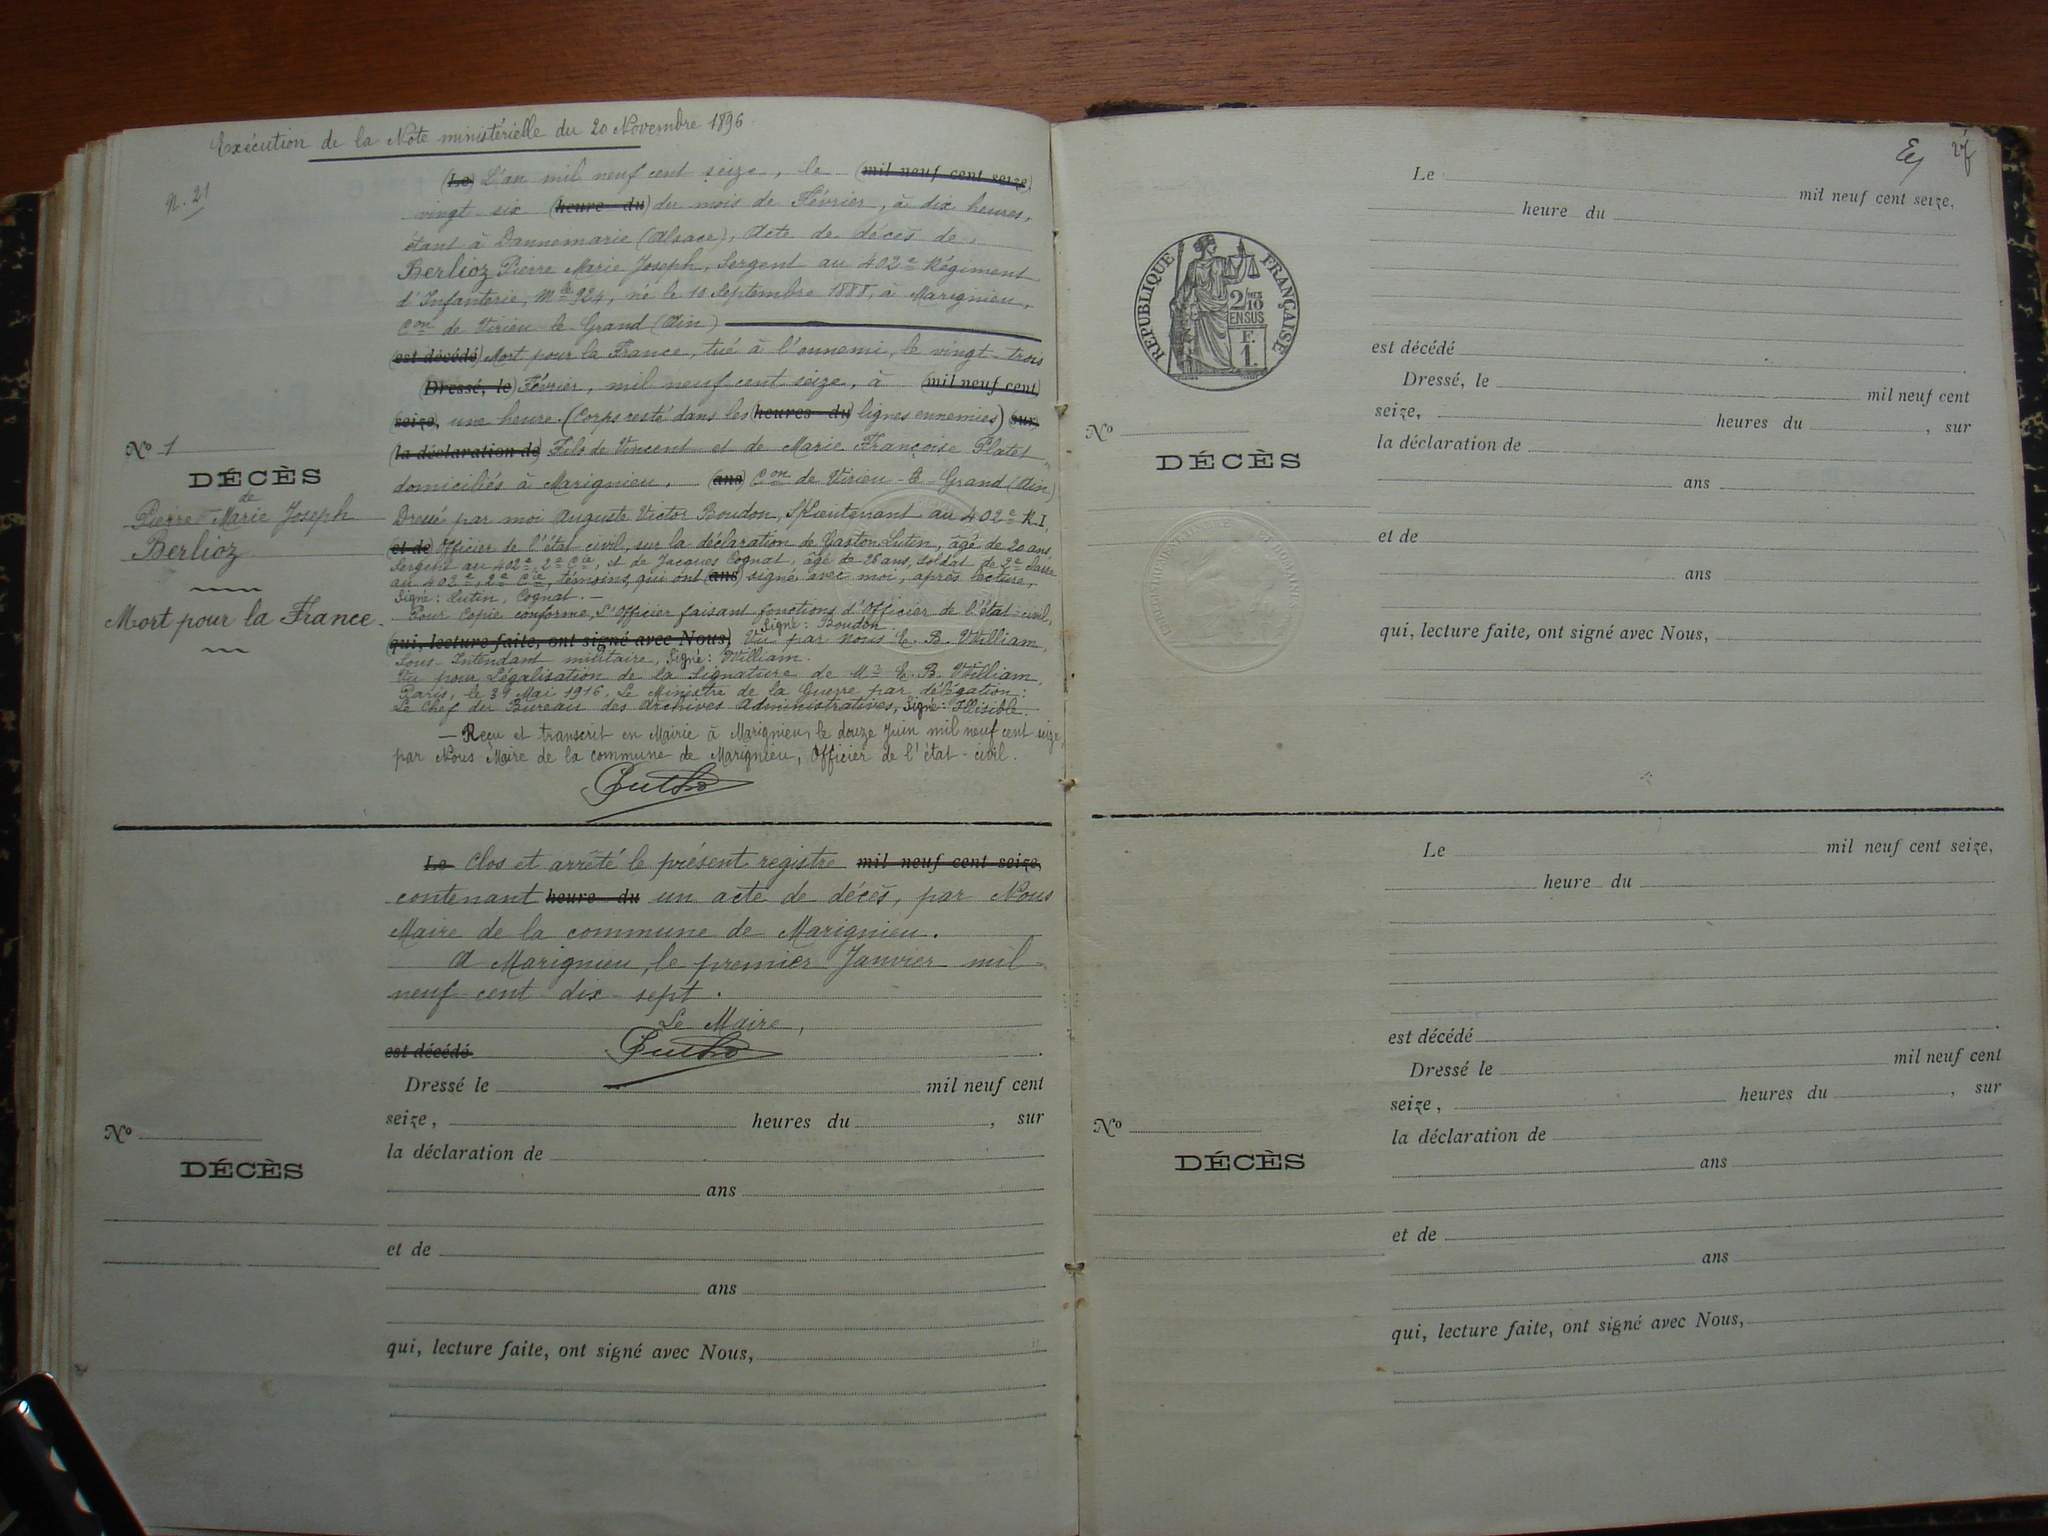 Exécution de la Note ministérielle du 20 Novembre 1896.
n. 21
(Le) L'an mil neuf cent seize, le (mil neuf cent seize)
vingt six (heure du) du mois de Février, à dix heures,
étant à Dannemarie (Alsace), Acte de décès de
Berlioz Pierre Marie Joseph, Sergent au 402e Régiment
d'Infanterie, Mle 924, né le 10 Septembre 1888, à Marignieu,
Con de Virieu le Grand (Ain)
(est décédé) Mort pour la France, tué à l'ennemi, le vingt-trois
(Dressé, le) Février, mil neuf cent seize, à (mil neuf cent)
(seize), une heure. (Corps resté dans les (heures du) lignes ennemies) (sur)
(la déclaration de) Fils de Vincent et de Marie Françoise Platet
domiciliés à Marignieu, (ans) Con de Virieu-le-Grand (Ain)
Dressé par moi Auguste Victor Boudon, S/Lieutenant au 402e R.I,
(et de) Officier de l'état civil, sur la déclaration de Gaston Lutin, âgé de 20 ans,
Sergent au 402e, 2e Cie, et de Jacques Cognat, âgé de 26 ans, soldat de 2e classe
au 402e, 2e Cie, témoins, qui ont (ans) signé avec moi, après lecture,
Signé: Lutin, Cognat.—
Pour Copie conforme, L'Officier faisant fonctions d'Officier de l'état-civil,
Signé: Boudon.
(qui, lecture faite, ont signé avec Nous,) Vu par nous E. B. William,
Sous-Intendant militaire, Signé: William.
Vu pour Légalisation de la Signature de Mr E. B. William,
Paris, le 31 Mai 1916, Le Ministre de la Guerre par délégation:
Le Chef du Bureau des Archives Administratives, Signé: Illisible.
— Reçu et transcrit en Mairie à Marignieu, le douze Juin mil neuf cent seize,
par Nous Maire de la commune de Marignieu, Officier de l'état-civil.
No 1
DÉCÈS
de
Pierre Marie Joseph
Berlioz
Mort pour la France.
Le Clos et arrêté le présent registre mil neuf cent seize,
contenant heure du un acte de décès, par Nous
Maire de la commune de Marignieu.
A Marignieu, le premier Janvier mil
neuf cent dix-sept.
Le Maire,
est décédé
Dressé le mil neuf cent
seize, heures du , sur
la déclaration de
ans
et de
ans
qui, lecture faite, ont signé avec Nous,
No
DÉCÈS
Le mil neuf cent seize,
heure du
est décédé
Dressé, le mil neuf cent
seize, heures du , sur
la déclaration de
ans
et de
ans
qui, lecture faite, ont signé avec Nous,
RÉPUBLIQUE FRANÇAISE
2/10
EN SUS
F.
1.
No
DÉCÈS
Le mil neuf cent seize,
heure du
est décédé
Dressé le mil neuf cent
seize, heures du , sur
la déclaration de
ans
et de
ans
qui, lecture faite, ont signé avec Nous,
No
DÉCÈS